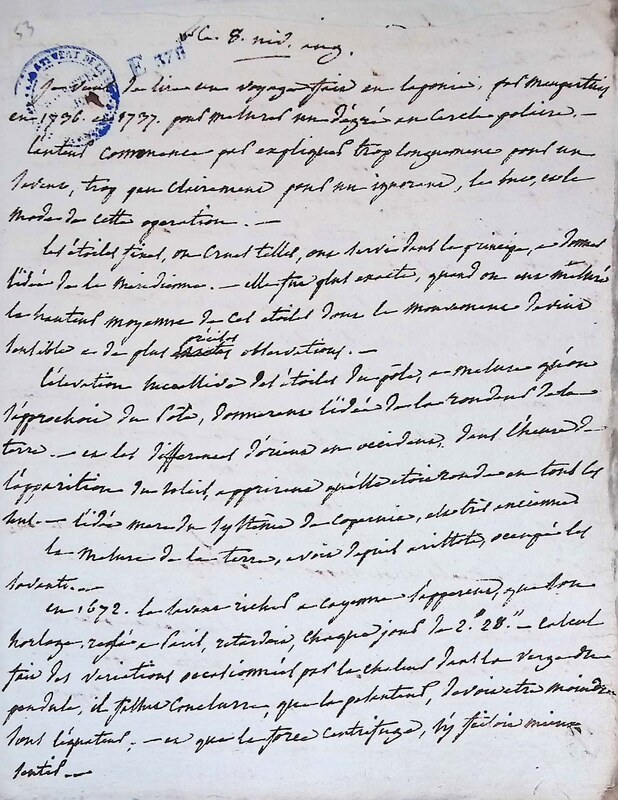 53
le 8. niv. 
E 378
je viens de lire un voyage fait en laponie, par maupertuis
en 1736. et 1737. pour mesurer un dégré au Cercle polaire. —
l'auteur commence par expliquer trop longuement pour un
savant, trop peu clairement pour un ignorant, le but, et le
mode de cette operation. —
les étoiles fixes, ou crues telles, ont servi dans le principe, a donner
l'idée de la meridienne. — elle fut plus exacte, quand on eut mesuré
la hauteur moyenne de ces etoiles dont le mouvement devint
sensible a de plus précises observations. —
l'élevation successive des étoiles du pôle, a mesure qu'on
s'approchoit du Pôle, donnerent l'idée de la rondeur de la
terre. — et les differences d'orient en occident, dans l'heure de
l'apparition du soleil, apprirent qu'elle etoit ronde en tous les
sens. — l'idée mere du systême de copernic, est très ancienne
la mesure de la terre, avoit depuis aristote, occupé les
savants. —
en 1672. le savant richer a cayenne s'apperçut, que son
horloge reglée a Paris, retardoit, chaque jour de 2.' 28." — calcul
fait des variations occasionnées par la chaleur dans la verge du
pendule, il fallut conclurre, que la pesanteur, devoit etre moindre
sous l'équateur, — et que la force centrifuge, s'y faisoit mieux
sentir. —